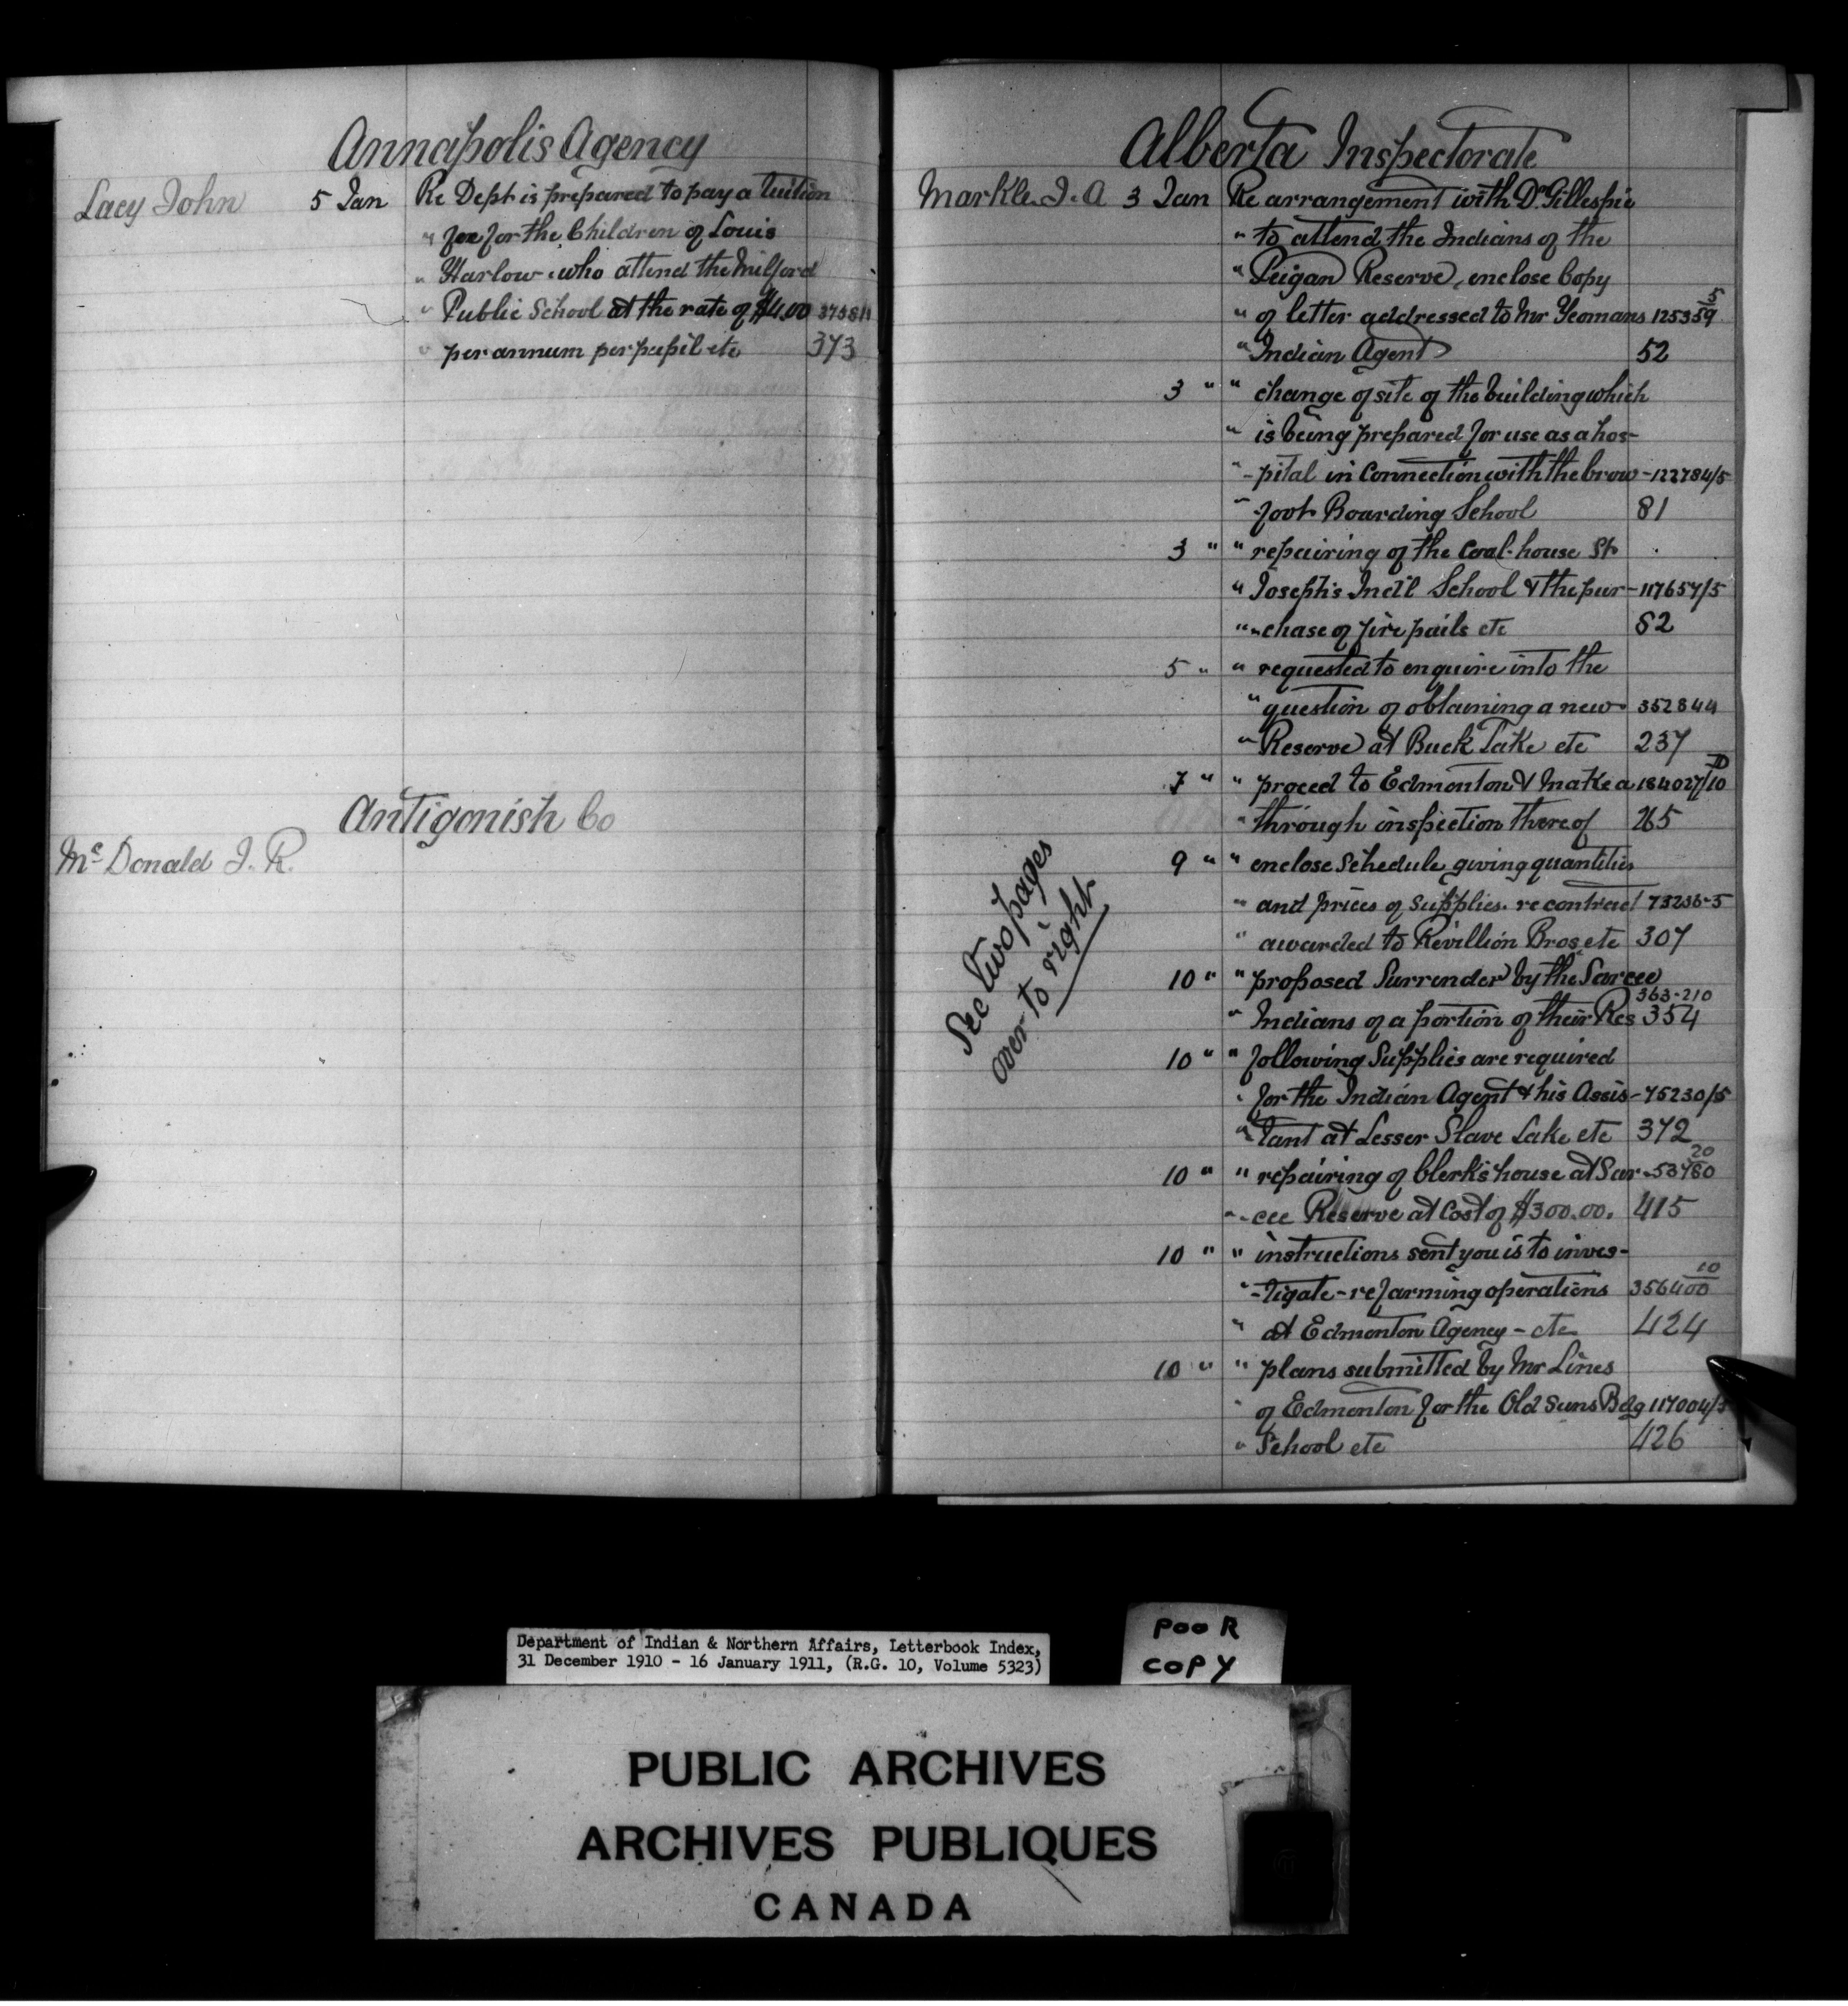 Annapolis Agency
Lacy John 5 Jan Re Dept is prepared to pay a tuition
" fee for the Children of Louis
" Harlow who attend the Milford
" Public School at the rate of $4.00
" per annum per pupil etc 373
Antigonish Co
Mc Donald J. R.
Alberta Inspectorate
Markle J. A 3 Jan Re arrangement with Dr Gillespie
" to attend the Indians of the
" Peigan Reserve, enclose Copy
" of letter addressed to Mr Yeomans 125359
" Indian Agent 52
3 " " change of site of the building which
" is being prepared for use as a hos-
" -pital in Connection with the Crow - 122784/5
" foot Boarding School 81
3 " " repairing of the Coal-house St
" Joseph's Ind'l School & the pur - 117657/5
" -chase of fire pails etc 82
5 " " requested to enquire into the
" question of obtaining a new 352844
" Reserve at Buck Lake etc 237
7 " " proceed to Edmonton & make a 184027/10
" through inspection thereof 265
9 " " enclose schedule giving quantities
" and prices of supplies. re contract 73236-5
" awarded to Revillion Bros etc 307
See two pages
over to right
10 " " proposed Surrender by the Sarcee
363-210
" Indians of a portion of their Res 354
10 " " following Supplies are required
" for the Indian Agent & his Assis - 75230/5
" -tant at Lesser Slave Lake etc 372
20
10 " " repairing of Clerk's house at Sar - 53780
" -cee Reserve at Cost of $300.00. 415
10 " " instructions sent you is to inves-
10
" -tigate - re farming operations 356400
" at Edmonton Agency - etc 424
10 " " plans submitted by Mr Lines
" of Edmonton for the Old Suns Bdg 117004/5
" School etc 426
Department of Indian & Northern Affairs, Letterbook Index,
31 December 1910 - 16 January 1911, (R.G. 10, Volume 5323)
POOR
COPY
PUBLIC ARCHIVES
ARCHIVES PUBLIQUES
CANADA